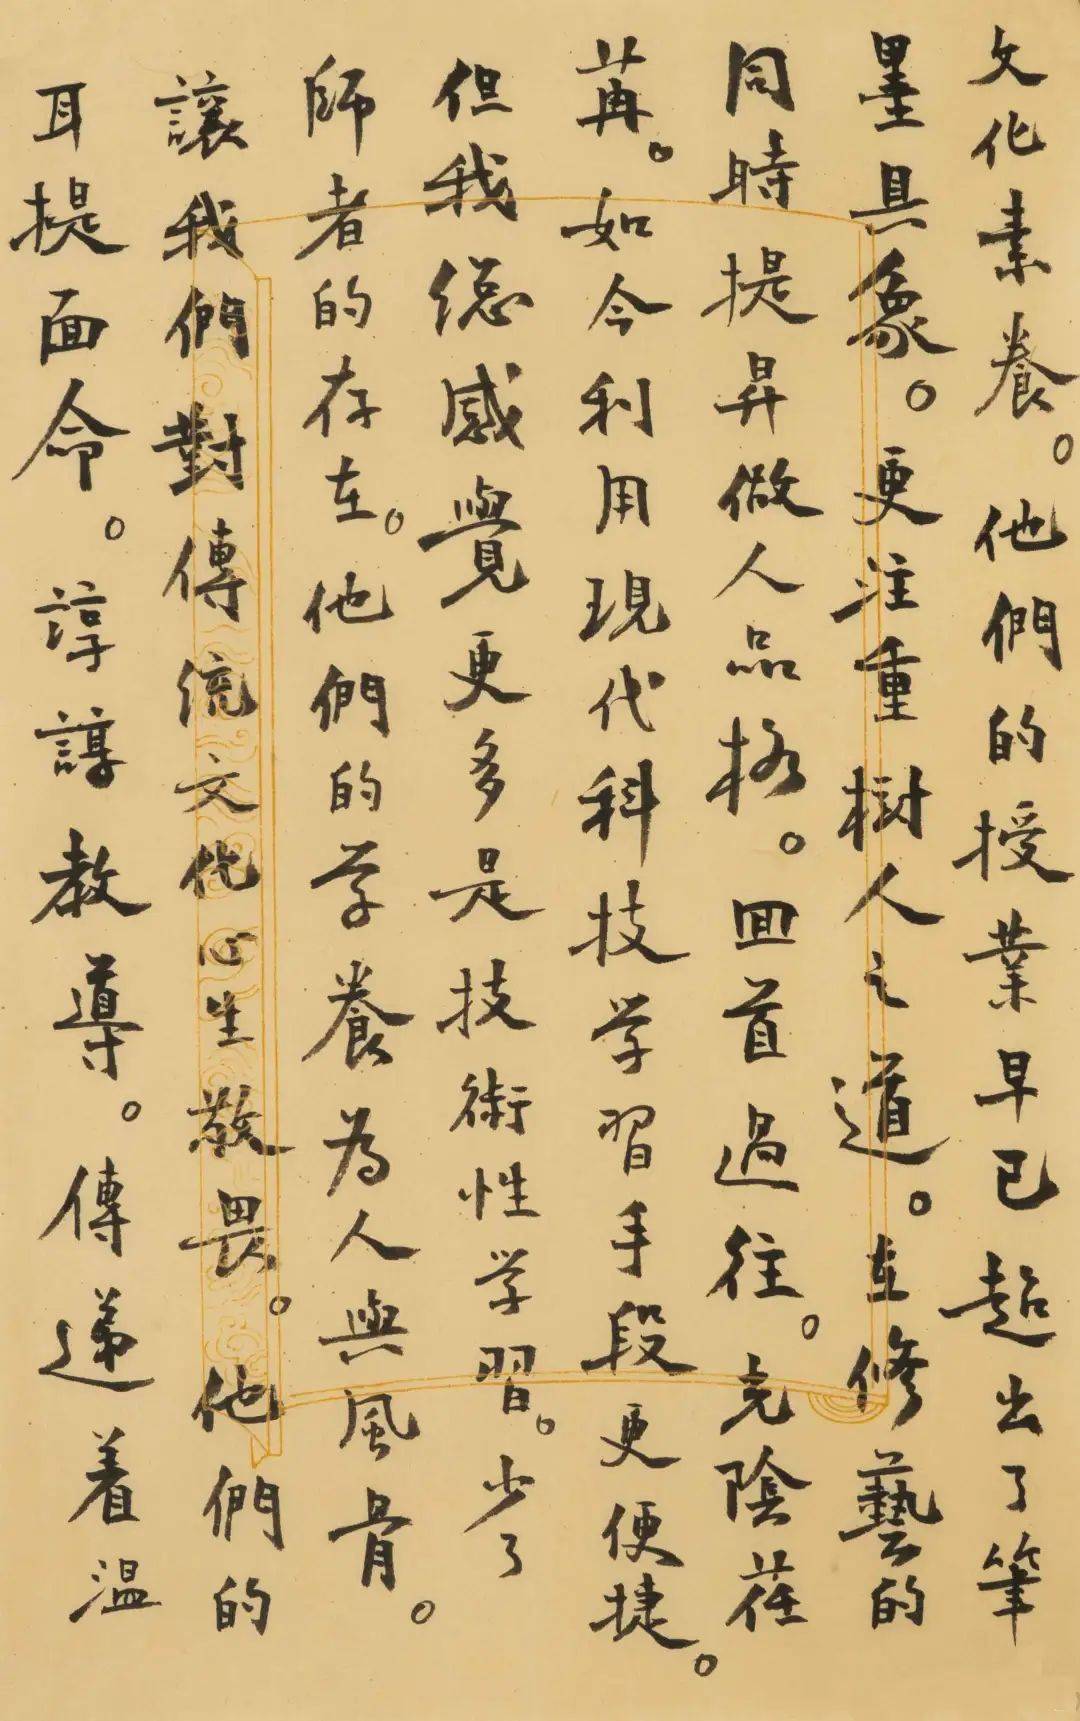 文化素養。他們的授業早已超出了筆
墨具象。更注重樹人之道。在修藝的
同時提昇做人品格。回首過往。光陰荏
苒。如今利用現代科技学習手段更便捷。
但我總感覺更多是技術性学習。少了
師者的存在。他們的学養為人與風骨。
讓我們對傳統文化心生敬畏。他們的
耳提面命。諄諄教導。傳递着温